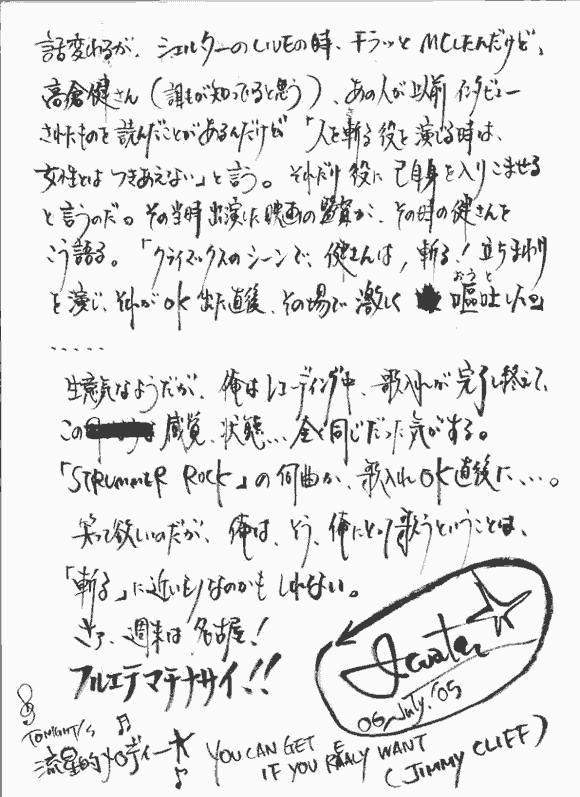 話変わるが、シェルターのLIVEの時、チラッとMCしたんだけど、
高倉健さん(誰もが知ってると思う)、あの人が以前インタビュー
されたものを読んだことがあるんだけど「人を斬る役を演じる時は、
女性とはつきあえない」と言う。それだけ役に己自身を入りこませる
と言うのだ。その当時出演した映画の監督が、その時の健さんを
こう語る。「クライマックスのシーンで、健さんは,斬る!立ちまわり
を演じ、それがOK出た直後、その場で激しく嘔吐した」
おうと
・・・・・
生意気なようだが、俺はレコーディング中、歌入れが完了し終えて、
この感覚、状態...全く同じだった気がする。
「STRUMMER ROCK」の何曲か、歌入れOK直後に、...。
笑って欲しいのだが、俺は、そう、俺にとって歌うということは、
「斬る」に近いものなのかもしれない。
さァ、週末は名古屋!
フルエテマチナサイ!!
06 July.'05
TONIGHT/S
流星的メロディー
YOU CAN GET
IF YOU REALY WANT
(JIMMY CLIFF)